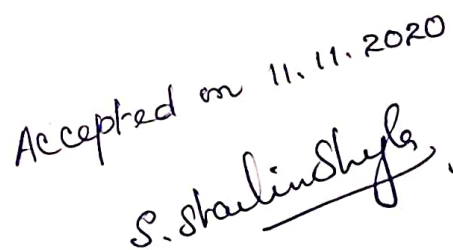 Accepted on 11.11.2020
S. Sharlin Shyla.